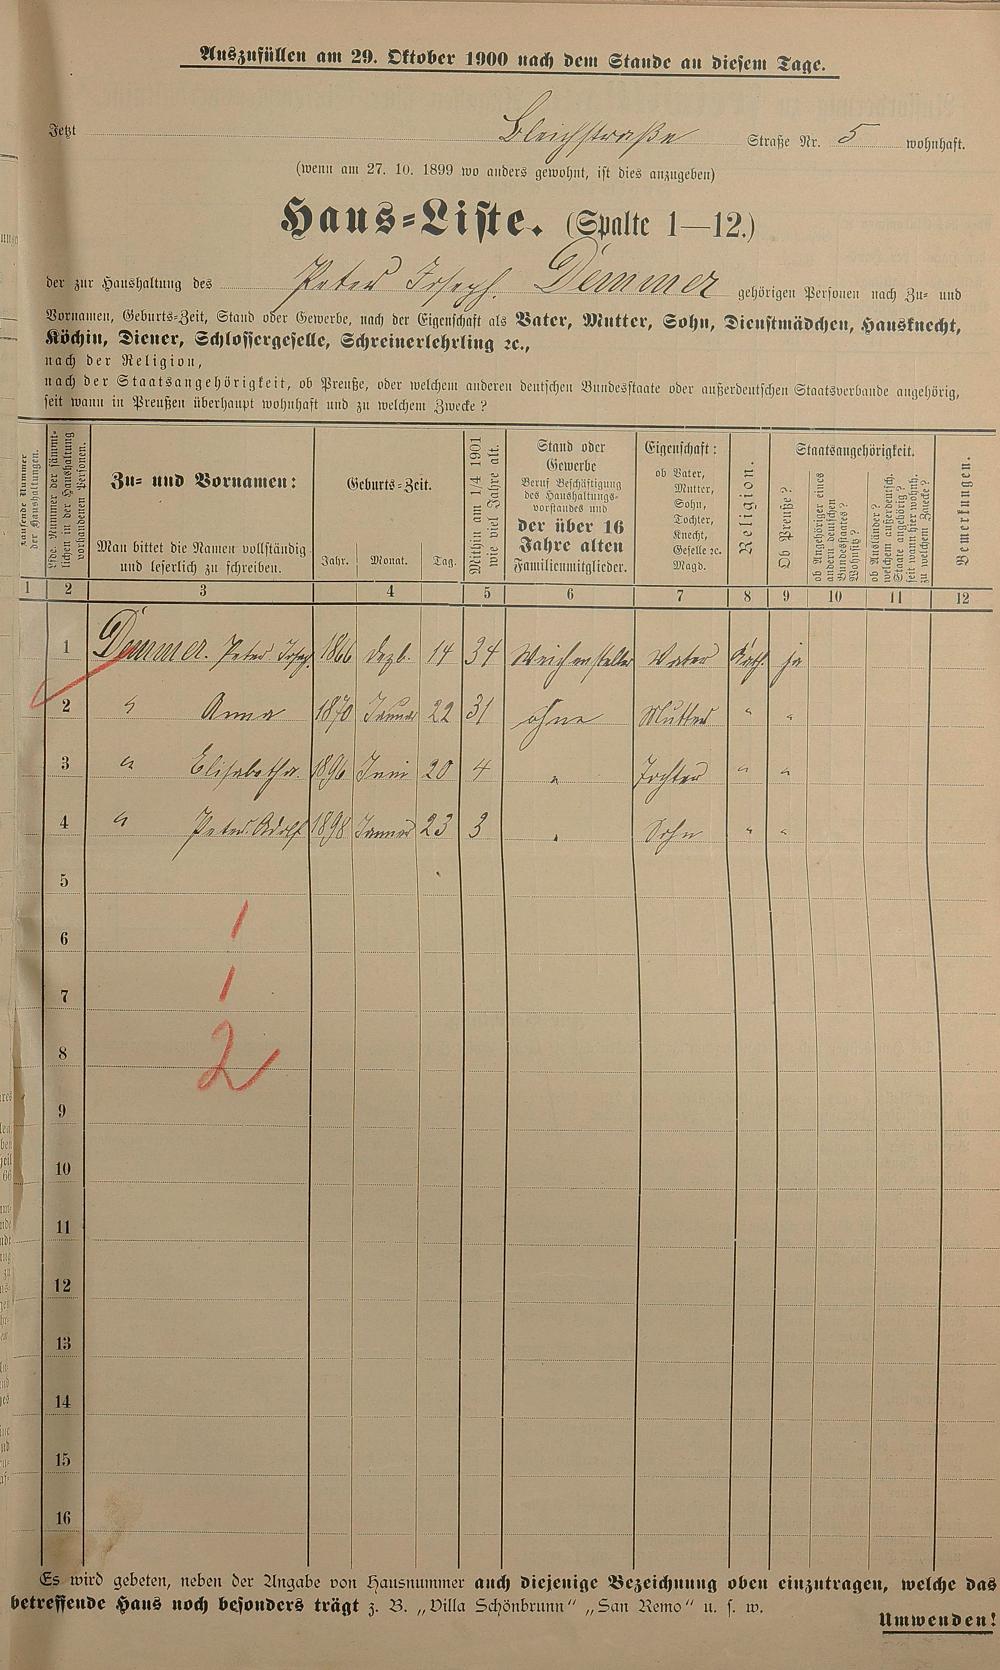 Auszufüllen am 29. Oktober 1900 nach dem Stande an diesem Tage.
Jetzt Bleichstraße Straße Nr. 5 wohnhaft.
(wenn am 27. 10. 1899 wo anders gewohnt, ist dies anzugeben)
Haus-Liste. (Spalte 1—12.)
der zur Haushaltung des Peter Joseph. Demmer gehörigen Personen nach Zu- und
Vornamen, Geburts-Zeit, Stand oder Gewerbe, nach der Eigenschaft als Vater, Mutter, Sohn, Dienstmädchen, Hausknecht,
Köchin, Diener, Schlossergeselle, Schreinerlehrling ꝛc.,
nach der Religion,
nach der Staatsangehörigkeit, ob Preuße, oder welchem anderen deutschen Bundesstaate oder außerdeutschen Staatsverbande angehörig,
seit wann in Preußen überhaupt wohnhaft und zu welchem Zwecke?
Laufende Nummer der Haushaltungen.
Lfde. Nummer der sämmtlichen in der Haushaltung vorhandenen Personen.
Zu- und Vornamen:
Man bittet die Namen vollständig
und leserlich zu schreiben.
Geburts-Zeit.
Jahr. Monat. Tag.
Mithin am 1/4 1901
wie viel Jahre alt.
Stand oder
Gewerbe
Beruf Beschäftigung
des Haushaltungs-
vorstandes und
der über 16
Jahre alten
Familienmitglieder.
Eigenschaft:
ob Vater,
Mutter,
Sohn,
Tochter,
Knecht,
Geselle ꝛc.
Magd.
Religion.
Staatsangehörigkeit.
Ob Preuße?
ob Angehöriger eines
andern deutschen
Bundesstaates?
Wohnsitz?
ob Ausländer?
welchem außerdeutsch.
Staate angehörig?
seit wann hier wohnh.
zu welchem Zwecke?
Bemerkungen.
1 2 3 4 5 6 7 8 9 10 11 12
1 Demmer. Peter Joseph 1866 Dezb. 14 34 Weichensteller Vater Kath. ja
2 " Anna 1870 Januar 22 31 ohne Mutter " "
3 " Elisabetha. 1896 Juni 20 4 " Tochter " "
4 " Peter Adolf 1898 Januar 23 3 " Sohn " "
5
6 1
7 1
8 2
9
10
11
12
13
14
15
16
Es wird gebeten, neben der Angabe von Hausnummer auch diejenige Bezeichnung oben einzutragen, welche das
betreffende Haus noch besonders trägt z. B. „Villa Schönbrunn" „San Remo" u. s. w.
Umwenden!